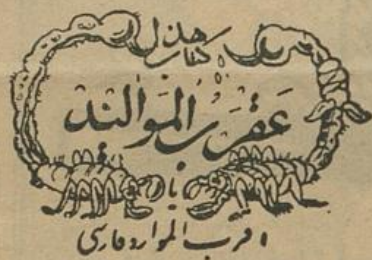 کتاب هذل
عقرب الموالند
یا
اقرب الموارد فارسی